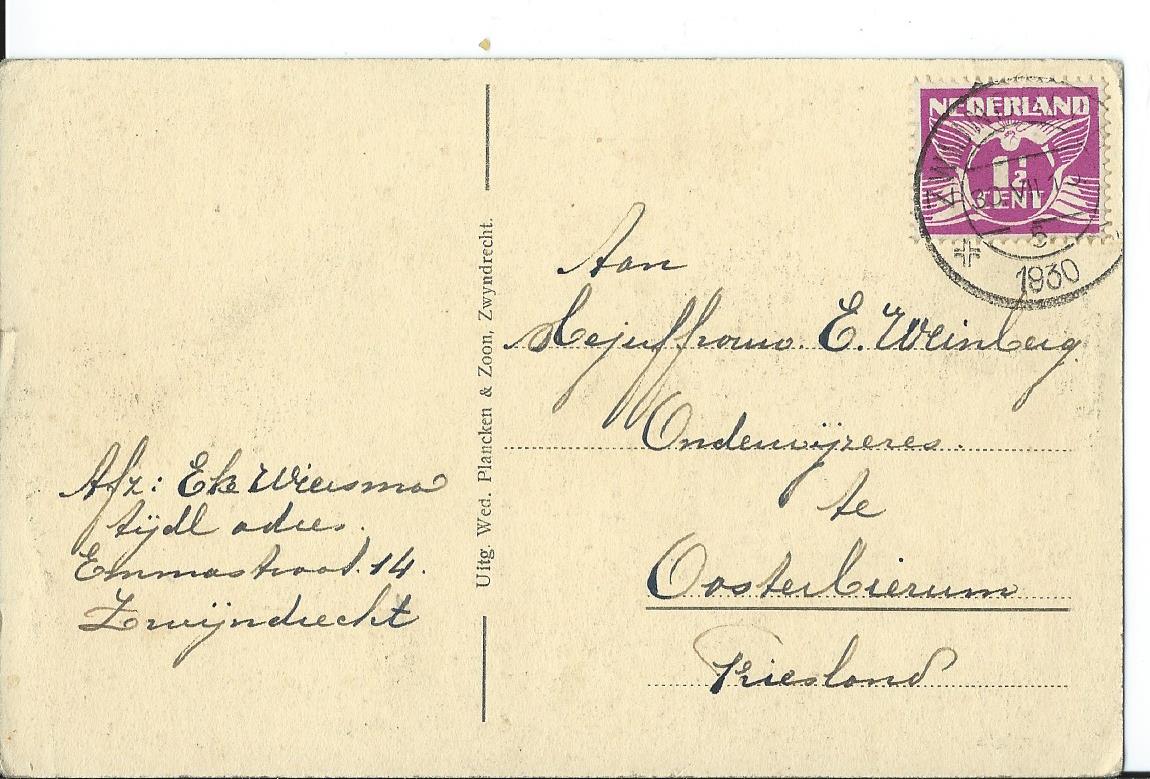 NEDERLAND
1½
CENT
ZWIJNDRECHT
30.VII
5
1930
Aan
Mejuffrouw. E. Weinberg.
Onderwijzeres.
te
Oosterbierum
Friesland
Afz: Eke Wiersma
tijdl adres.
Emmastraat. 14.
Zwijndrecht
Uitg. Wed. Plancken & Zoon, Zwyndrecht.